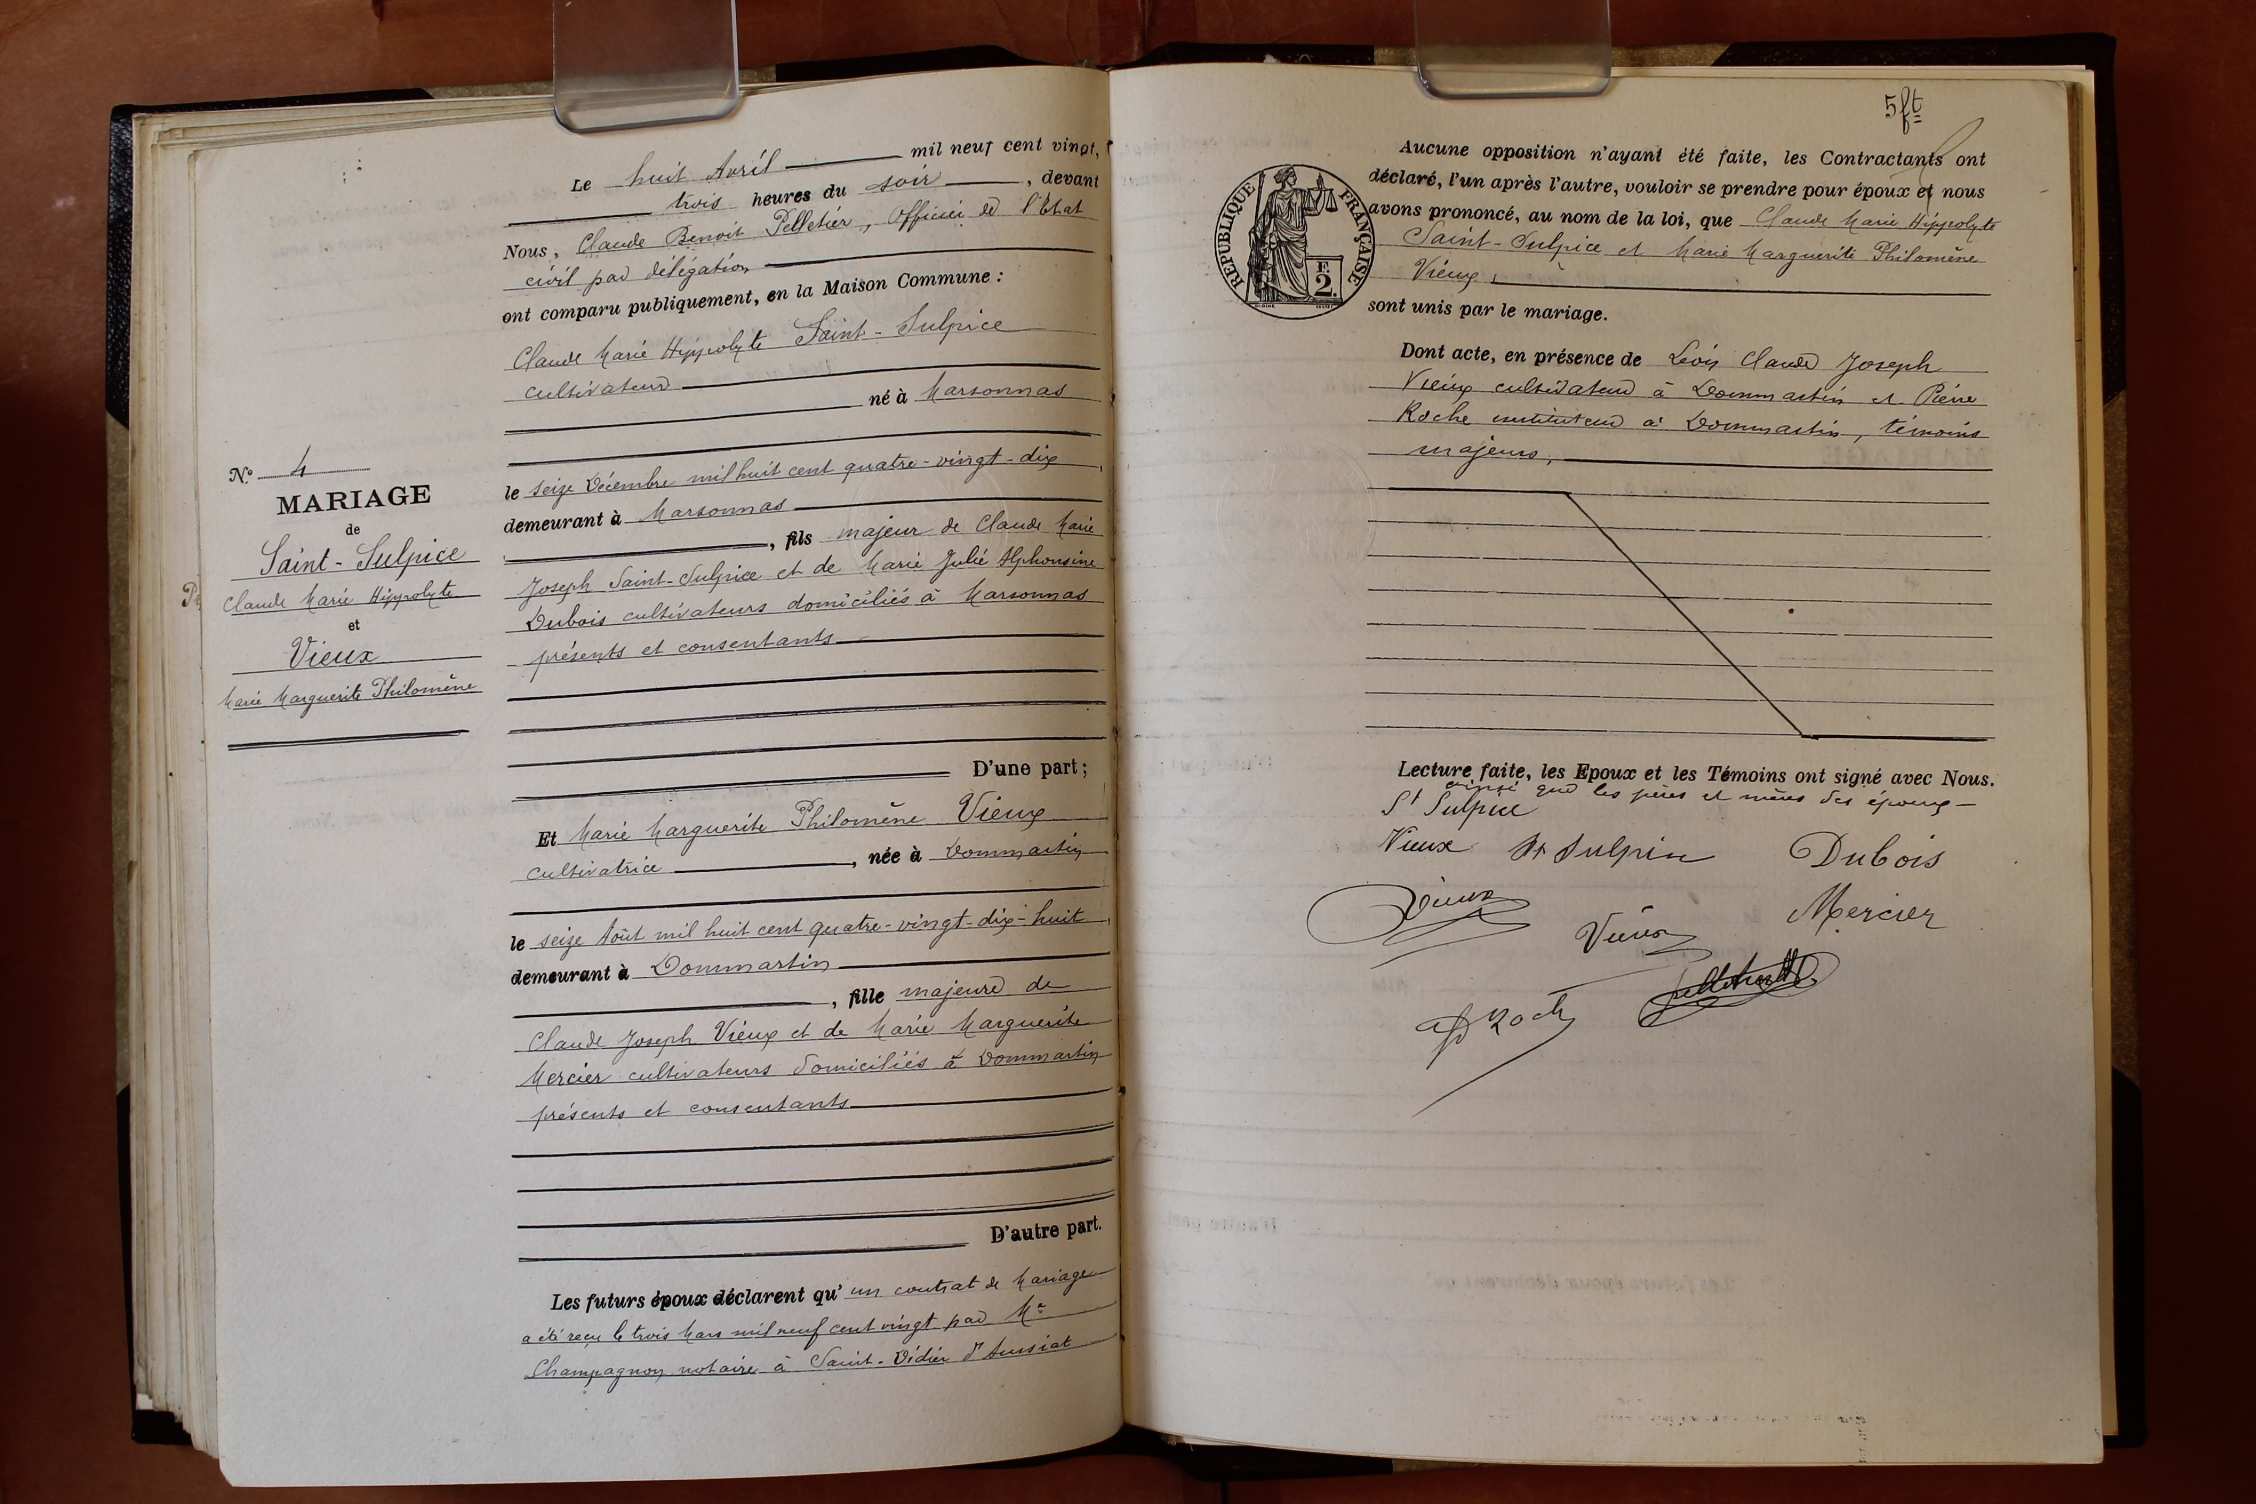 Le huit Avril mil neuf cent vingt,
trois heures du soir, devant
Nous, Claude Benoit Pelletier, Officier de l'Etat
civil par délégation
ont comparu publiquement, en la Maison Commune :
Claude Marie Hippolyte Saint-Sulpice
cultivateur
né à Marsonnas
le seize Décembre mil huit cent quatre-vingt-dix
demeurant à Marsonnas
, fils majeur de Claude Marie
Joseph Saint-Sulpice et de Marie Julie Alphonsine
Dubois cultivateurs domiciliés à Marsonnas
présents et consentants
D'une part ;
Et Marie Marguerite Philomène Vieux
cultivatrice, née à Dommartin
le seize Août mil huit cent quatre-vingt-dix-huit
demeurant à Dommartin
, fille majeure de
Claude Joseph Vieux et de Marie Marguerite
Mercier cultivateurs domiciliés à Dommartin
présents et consentants
D'autre part.
Les futurs époux déclarent qu'un contrat de Mariage
a été reçu le trois Mars mil neuf cent vingt par Me
Champagnon notaire à Saint-Didier d'Aussiat
N° 4
MARIAGE
de
Saint-Sulpice
Claude Marie Hippolyte
et
Vieux
Marie Marguerite Philomène
5ft
REPUBLIQUE FRANÇAISE
F.
2.
Aucune opposition n'ayant été faite, les Contractants ont
déclaré, l'un après l'autre, vouloir se prendre pour époux et nous
avons prononcé, au nom de la loi, que Claude Marie Hippolyte
Saint-Sulpice et Marie Marguerite Philomène
Vieux,
sont unis par le mariage.
Dont acte, en présence de Léon Claude Joseph
Vieux cultivateur à Dommartin et Pierre
Roche instituteur à Dommartin, témoins
majeurs,
Lecture faite, les Epoux et les Témoins ont signé avec Nous.
ainsi que les pères et mères des époux
St Sulpice
Vieux St Sulpice Dubois
Vieux Vieux Mercier
P Roche